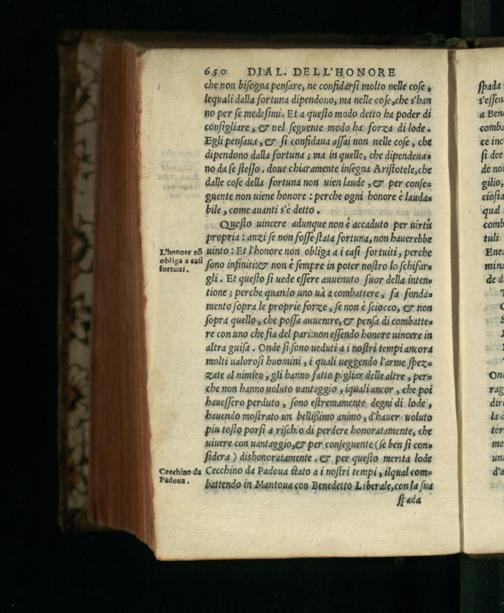 650 DIAL. DELL'HONORE
che non bisogna pensare, ne confidarsi molto nelle cose,
lequali dalla fortuna dipendono, ma nelle cose, che s'han
no per se medesimi. Et a questo modo detto ha poder di
consigliare, & nel seguente modo ha forza di lode.
Egli pensaua, & si confidaua assai non nelle cose, che
dipendono dalla fortuna; ma in quelle, che dipendeua=
no da se stesso. doue chiaramente insegna Aristotele, che
dalle cose della fortuna non uien laude, & per conse=
guente non uiene honore: perche ogni honore è lauda=
bile, come auanti s'è detto.
Questo uincere adunque non è accaduto per uirtù
propria: anzi se non fosse stata fortuna, non hauerebbe
uinto: Et l'honore non obliga a i casi fortuiti, perche
sono infiniti: & non è sempre in poter nostro lo schifar=
gli. Et questo si uede essere auuenuto fuor della inten=
tione; perche quando uno uà a combattere, fa fonda=
mento sopra le proprie forze, se non è sciocco, & non
sopra quello, che possa auuenire, & pensa di combatte=
re con uno che sia del pari: non essendo honore uincere in
altra guisa. Onde si sono ueduti a i nostri tempi ancora
molti ualorosi huomini, i quali ueggendo l'arme spez=
zate al nimico, gli hanno fatto pigliar delle altre, per=
che non hanno uoluto uantaggio, iquali ancor, che poi
hauessero perduto, sono estremamente degni di lode,
hauendo mostrato un bellissimo animo, d'hauer uoluto
piu tosto porsi a rischio di perdere honoratamente, che
uiuere con uantaggio, & per conseguente (se ben si con=
sidera) dishonoratamente. & per questo merita lode
Cecchino da Padoua stato a i nostri tempi, ilqual com=
battendo in Mantoua con Benedetto Liberale, con la sua
spada
L'honore nō
obliga a casi
fortuiti.
Cecchino da
Padoua.